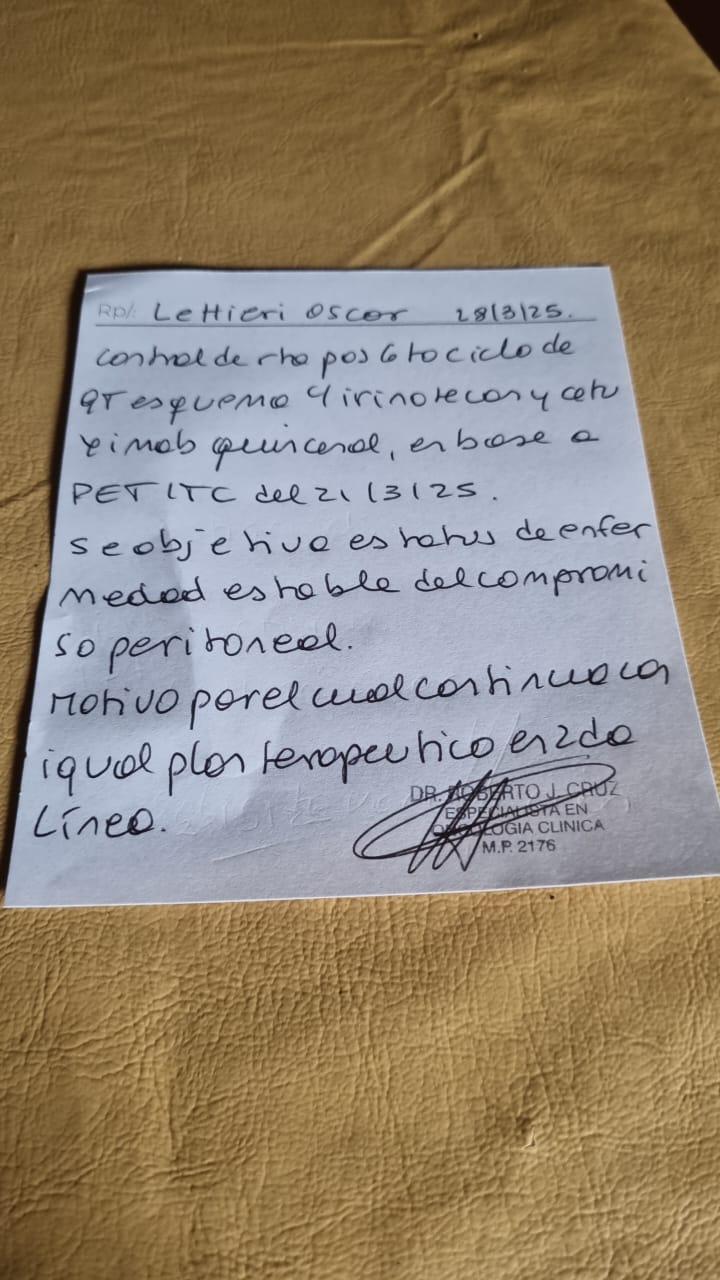 Rp/: Lettieri Oscar 28/3/25.
Control de rta pos 6to ciclo de
QT esquema irinotecan y cetu
ximab quincenal, en base a
PET/TC del 21/3/25.
Se objetivo estatus de enfer
medad estable del compromi
so peritoneal.
Motivo por el cual continua con
igual plan terapeutico en 2da
Línea.
DR. ROBERTO J. CRUZ
ESPECIALISTA EN
ONCOLOGIA CLINICA
M.P. 2176